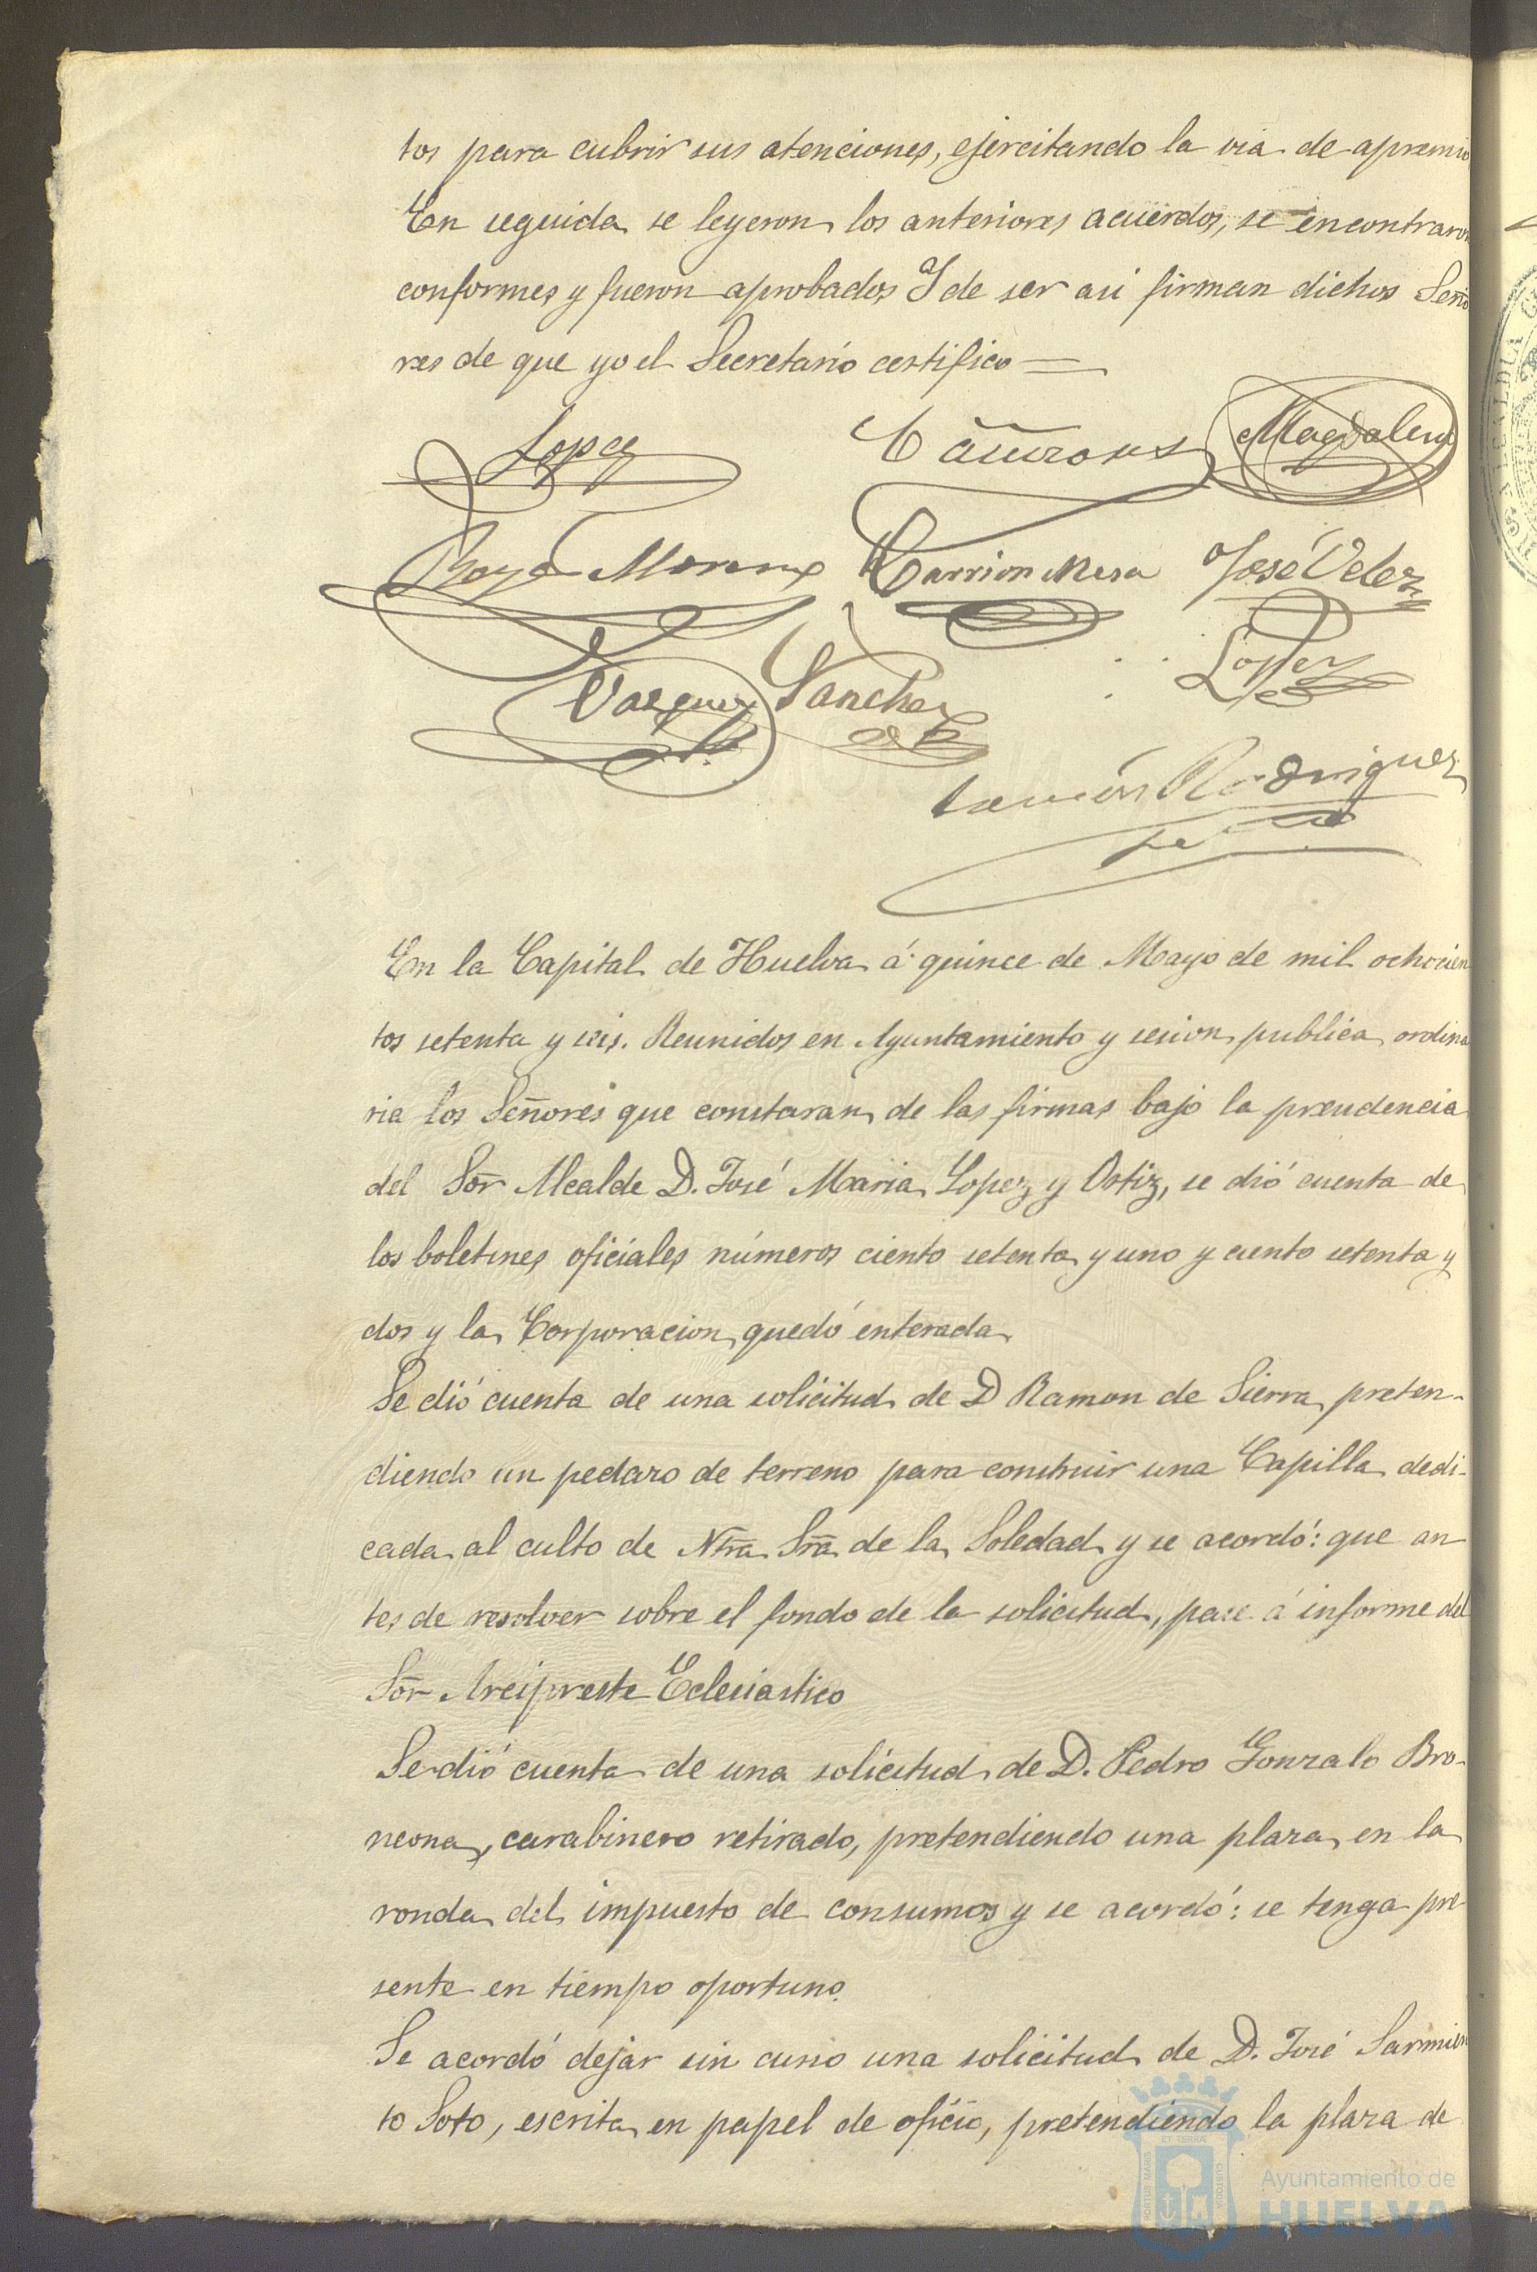 tos para cubrir sus atenciones, ejercitando la via de apremio
En seguida se leyeron los anteriores acuerdos, se encontraron
conformes y fueron aprobados Y de ser asi firman dichos Seño
res de que yo el Secretario certifico =
Lopez Magdalena
Moreno Carrion Mesa José Velez
Vazquez Sanchez Lopez
Ramón Rodriguez
En la Capital de Huelva á quince de Mayo de mil ochocien
tos setenta y seis. Reunidos en Ayuntamiento y sesion publica ordina
ria los Señores que constaran de las firmas bajo la presidencia
del Sor Alcalde D. José Maria Lopez y Ortiz, se dió cuenta de
los boletines oficiales números ciento setenta y uno y ciento setenta y
dos y la Corporacion quedó enterada
Se dió cuenta de una solicitud de D Ramon de Sierra preten-
diendo un pedazo de terreno para construir una Capilla dedi-
cada al culto de Ntra Sra de la Soledad y se acordó: que an
tes de resolver sobre el fondo de la solicitud, pase á informe del
Sor Arcipreste Eclesiastico
Se dió cuenta de una solicitud de D. Pedro Gonzalo Bro-
neona, carabinero retirado, pretendiendo una plaza en la
ronda del impuesto de consumos y se acordó: se tenga pre
sente en tiempo oportuno.
Se acordó dejar sin curso una solicitud de D. José Sarmien
to Soto, escrita en papel de oficio, pretendiendo la plaza de
Ayuntamiento de
HUELVA